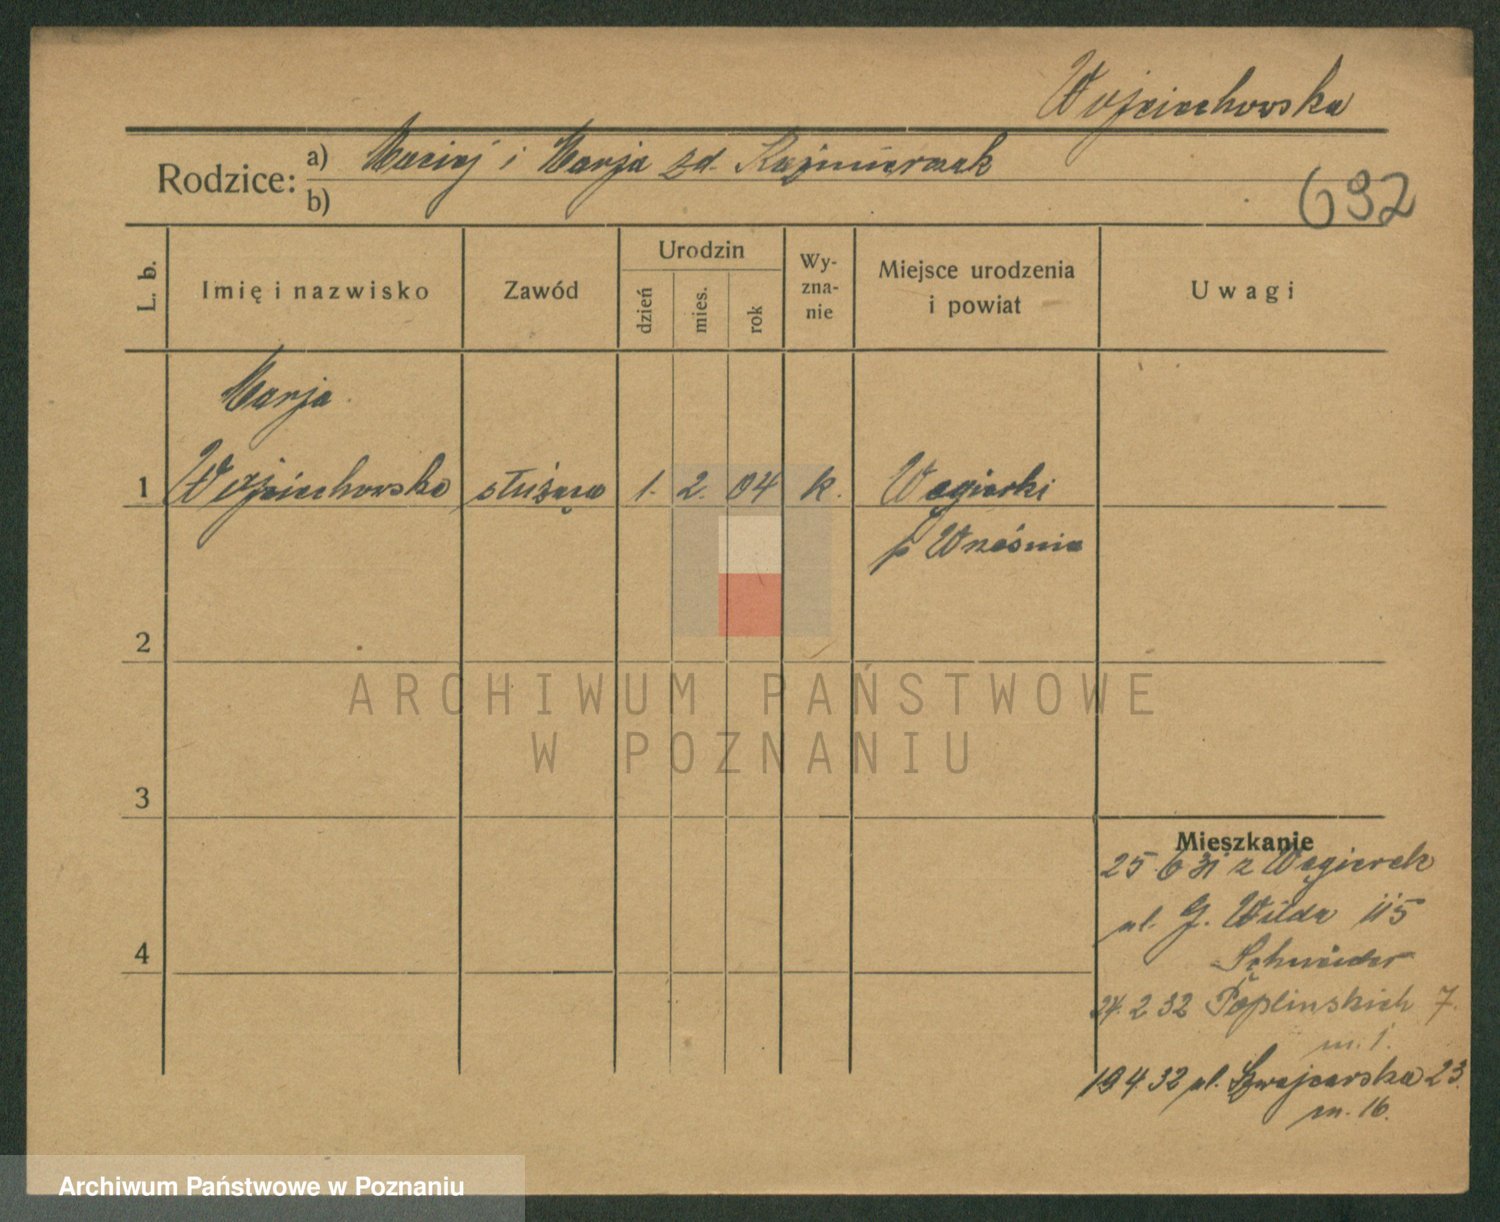 Wojciechowska
Rodzice: a) Maciej i Marja zd. Kaźmierczak
b)
632
L. b.
Imię i nazwisko
Zawód
Urodzin
dzień
mies.
rok
Wy-
zna-
nie
Miejsce urodzenia
i powiat
Uwagi
Marja
1 Wojciechowska służąca 1. 2. 04 k. Węgierki
p Września
2
ARCHIWUM PAŃSTWOWE
W POZNANIU
3
Mieszkanie
25.6 31 z Węgierek
ul. G. Wilda 115
Schneider
4
24.2.32 Poplinskich 7.
m. 1.
19 4.32 ul. Szwajcarska 23.
m. 16.
Archiwum Państwowe w Poznaniu